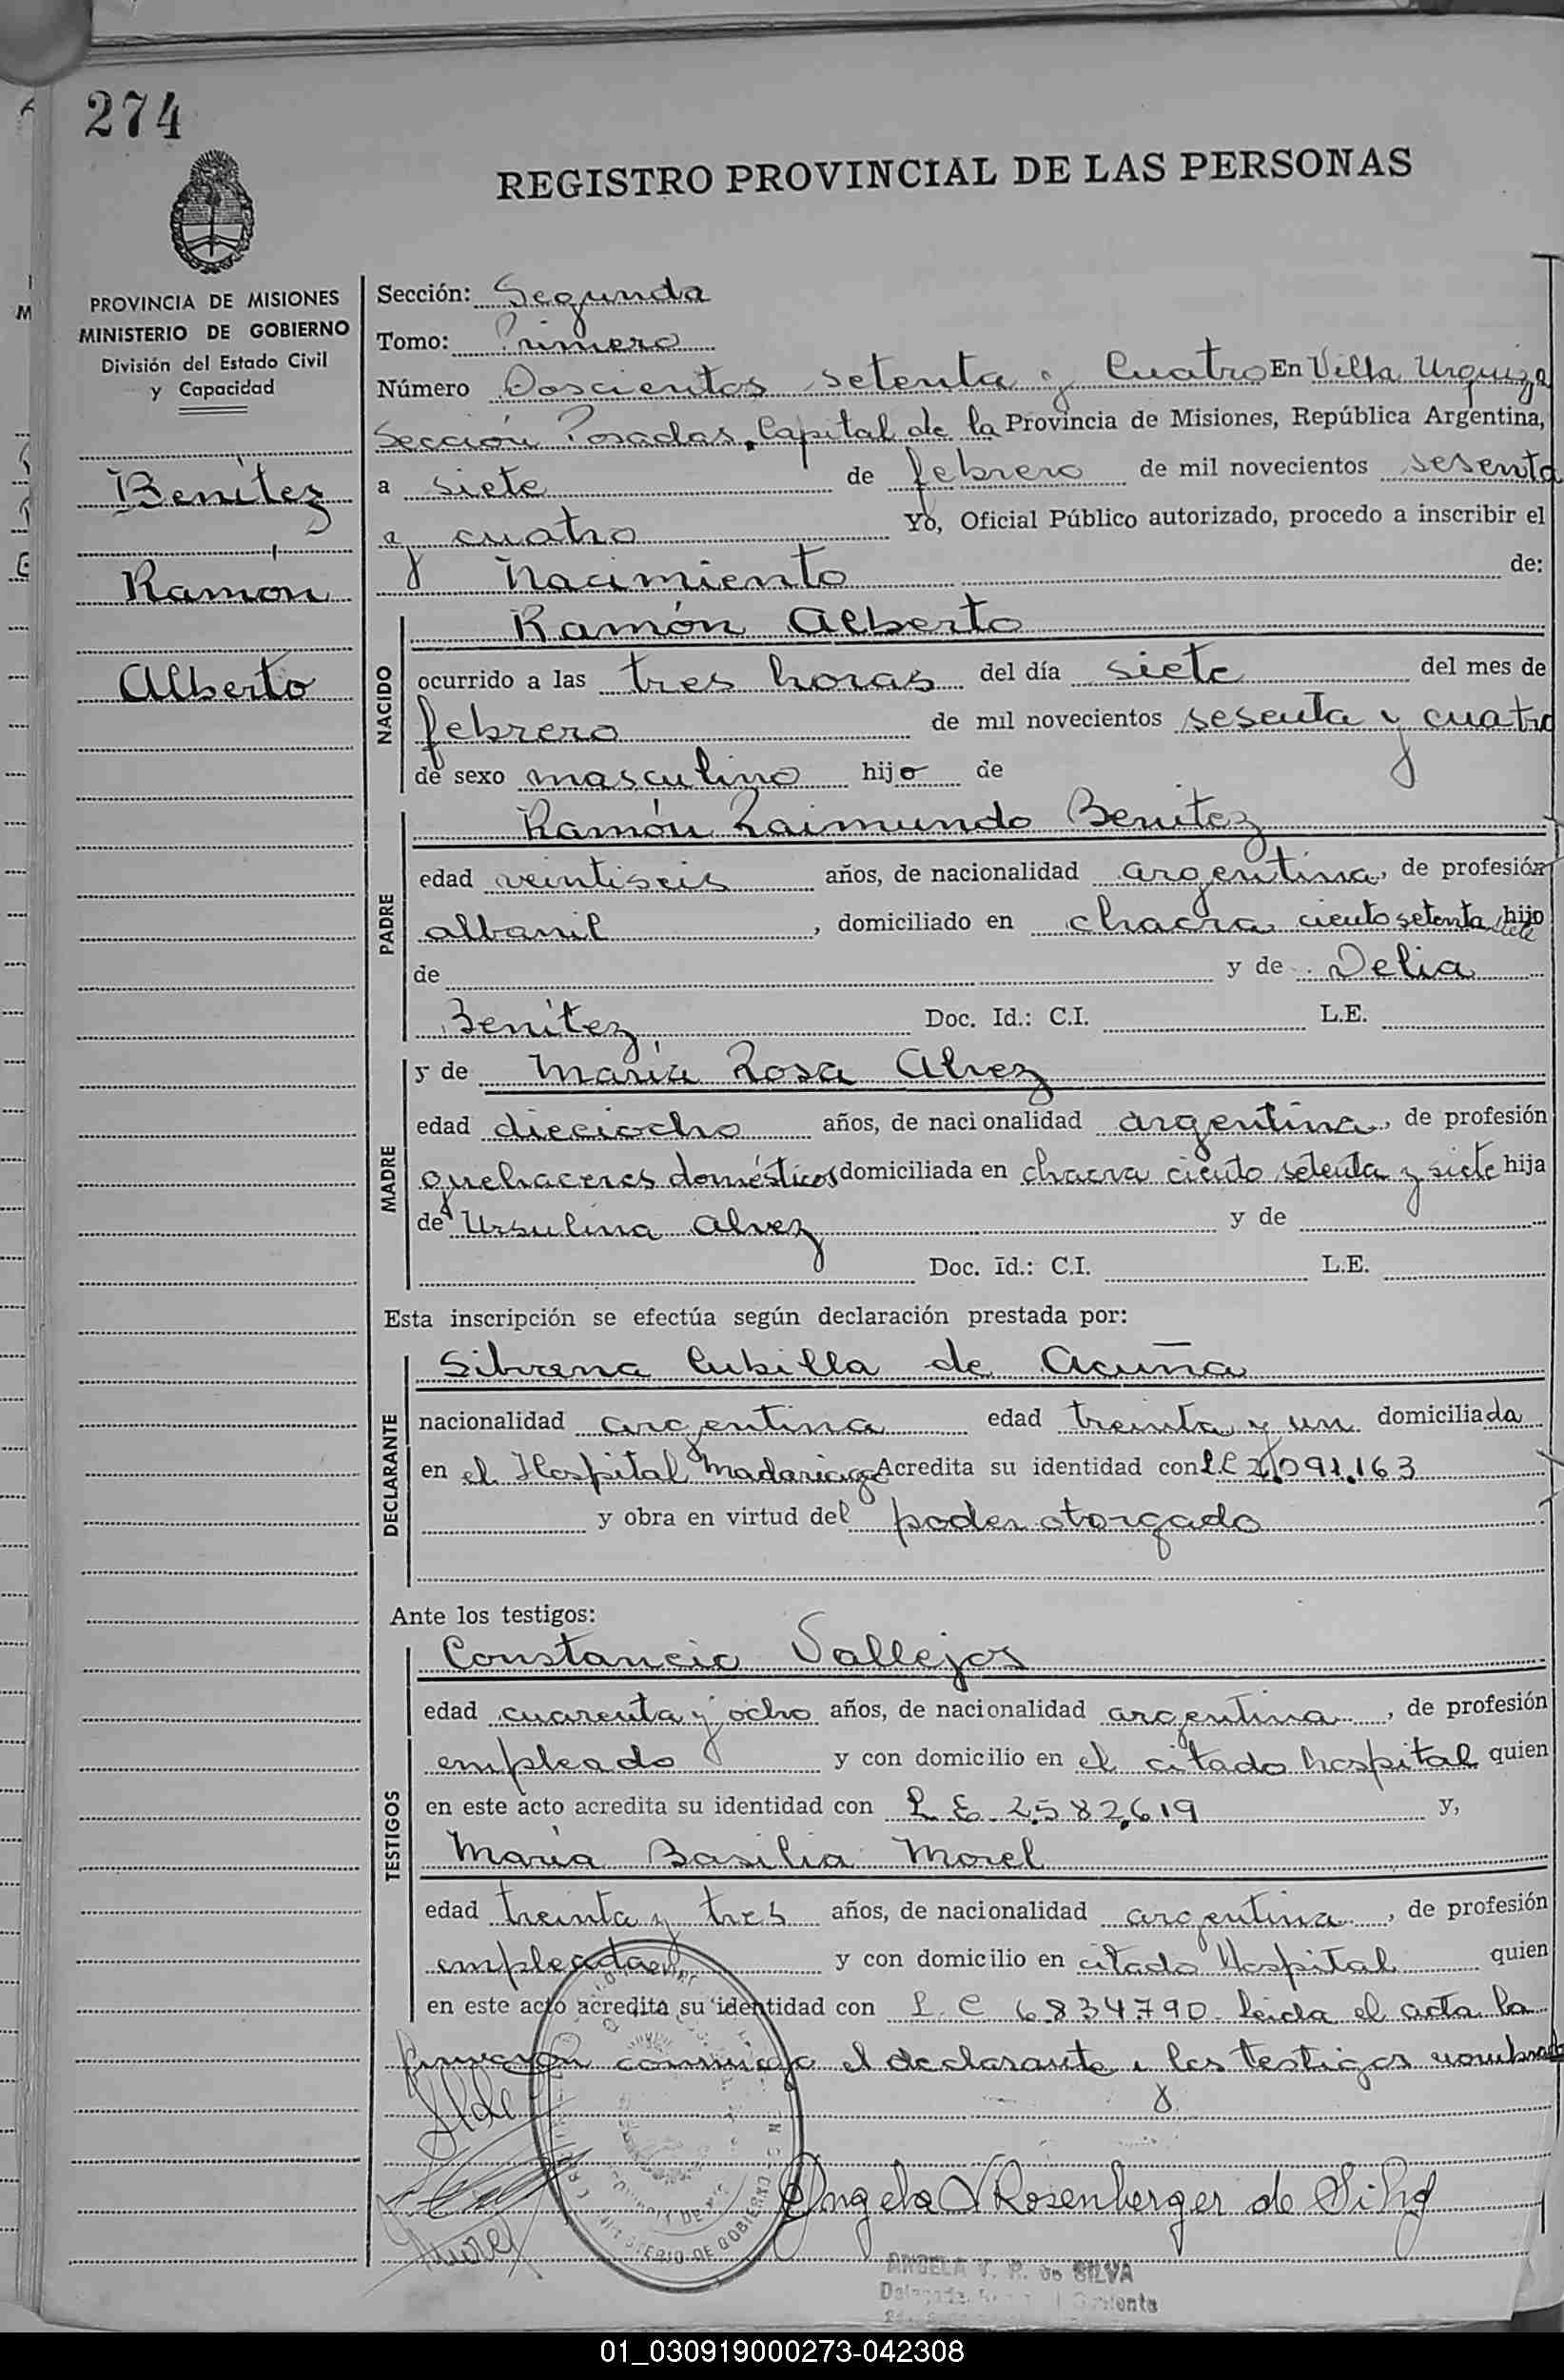 274
REGISTRO PROVINCIAL DE LAS PERSONAS
PROVINCIA DE MISIONES
MINISTERIO DE GOBIERNO
División del Estado Civil
y Capacidad
Benítez
Ramón
Alberto
Sección: Segunda
Tomo: Primero
Número Doscientos setenta y Cuatro En Villa Urquiza
Sección Posadas, Capital de la Provincia de Misiones, República Argentina,
a siete de febrero de mil novecientos sesenta
y cuatro Yo, Oficial Público autorizado, procedo a inscribir el
Nacimiento de:
NACIDO
Ramón Alberto
ocurrido a las tres horas del día siete del mes de
febrero de mil novecientos sesenta y cuatro
de sexo masculino hijo de
PADRE
Ramón Raimundo Benitez
edad veintiseis años, de nacionalidad argentina, de profesión
albanil, domiciliado en chacra ciento setenta siete hijo
de y de Delia
Benítez Doc. Id.: C.I. L.E.
MADRE
y de María Rosa Alvez
edad dieciocho años, de nacionalidad argentina, de profesión
quehaceres domésticos domiciliada en chacra ciento setenta y siete hija
de Ursulina Alvez y de
Doc. Id.: C.I. L.E.
Esta inscripción se efectúa según declaración prestada por:
DECLARANTE
Cubilla de Acuña
nacionalidad argentina edad treinta y un domiciliada
en el Hospital Madariaga Acredita su identidad con L.C 091.163
y obra en virtud del poder otorgado
Ante los testigos:
TESTIGOS
Constancio Vallejos
edad cuarenta y ocho años, de nacionalidad argentina, de profesión
empleado y con domicilio en el citado hospital quien
en este acto acredita su identidad con L E 2.582.619 y,
María Basilia Morel
edad treinta y tres años, de nacionalidad argentina, de profesión
empleada y con domicilio en citado Hospital quien
en este acto acredita su identidad con L. C 6.834.790. Leida el acta la
firmaron conmigo el declarante y los testigos nombrados
Angela V Rosenberger de Silva
MINISTERIO DE GOBIERNO
ANGELA V. R. de SILVA
01_030919000273-042308